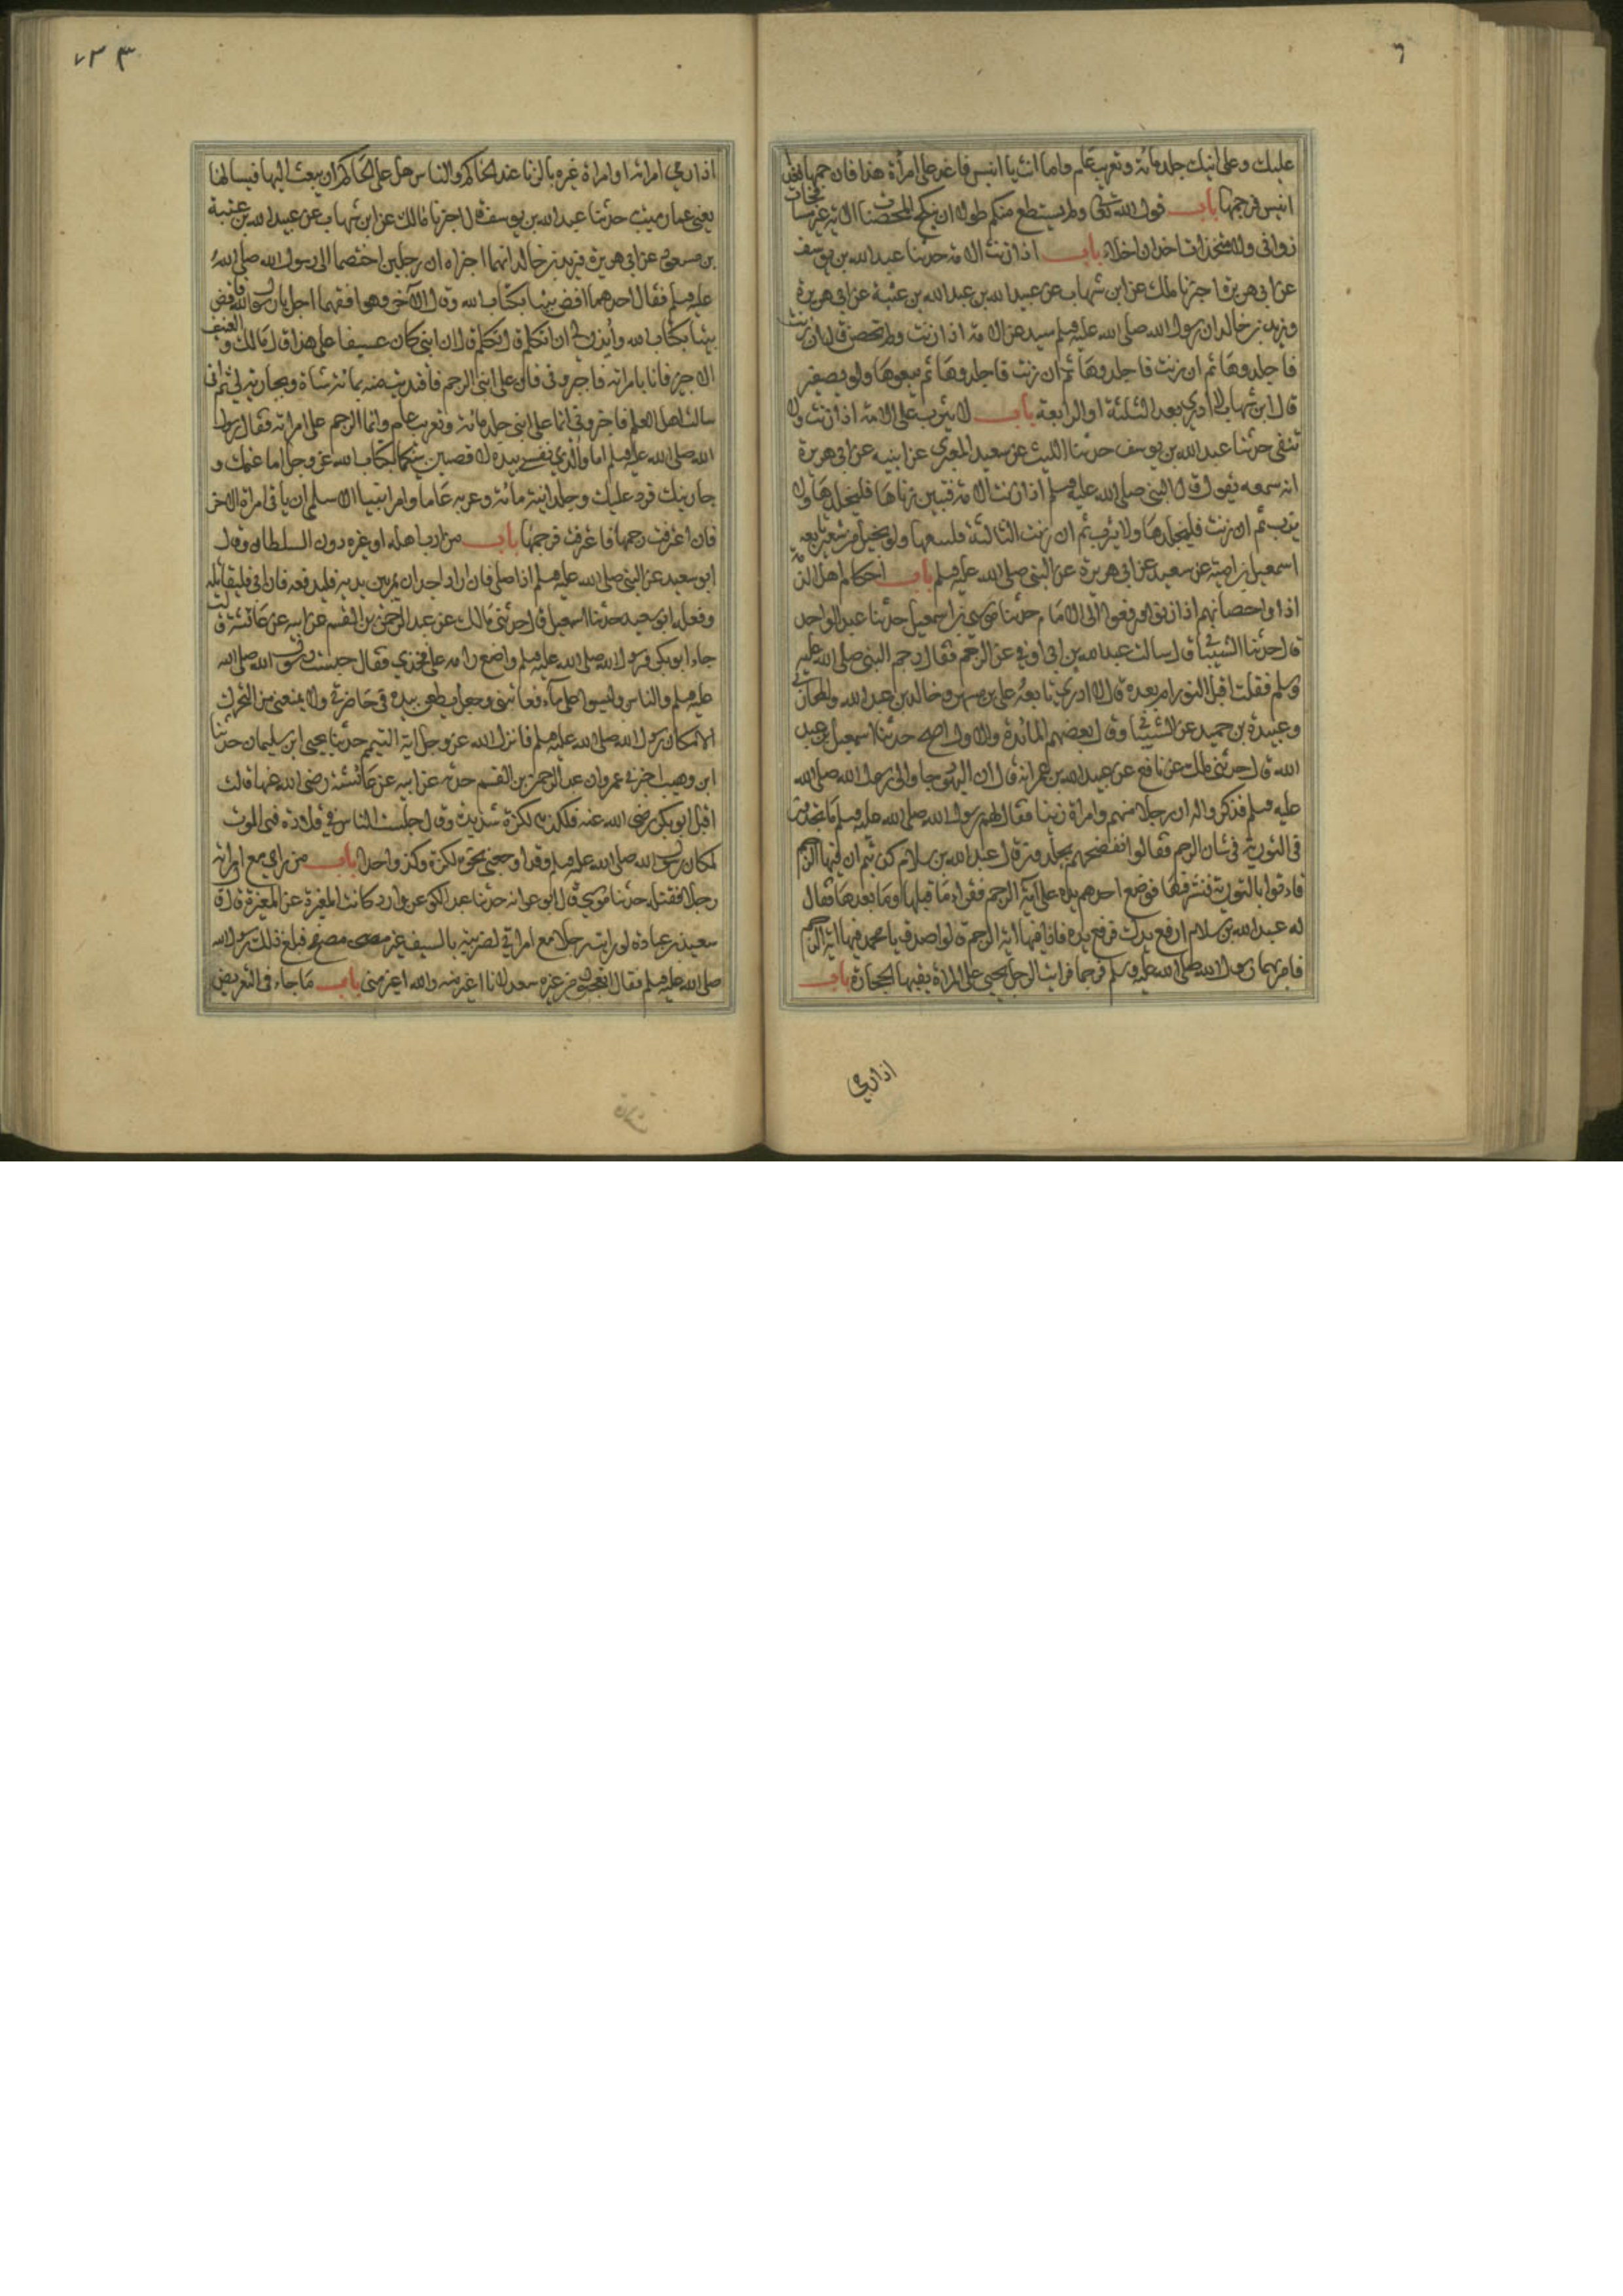 ٦
عليك وعلى ابنك جلد مائة وتغريب عام واما انت يا انيس فاغد على امرأة هذا فارجمها فغدا
انيس فرجمها باب قول الله تعالى ومن لم يستطع منكم طولا ان ينكح المحصنات الاية غير مسافحات
زواني ولا متخذات اخدان اخلاء باب اذا زنت الامة حدثنا عبد الله بن يوسف
عن ابي هريرة اخبرنا مالك عن ابن شهاب عن عبيد الله بن عبد الله بن عتبة عن ابي هريرة
وزيد بن خالد ان رسول الله صلى الله عليه وسلم سيد عن الامة اذا زنت ولم تحصن قال ان زنت
فاجلدوها ثم ان زنت فاجلدوها ثم ان زنت فاجلدوها ثم بيعوها ولو بضفير
قال ابن شهاب لا ادري بعد الثلثة او الرابعة باب لا يثرب على الامة اذا زنت ولا
تنفى حدثنا عبد الله بن يوسف حدثنا الليث عن سعيد المقبري عن ابيه عن ابي هريرة
انه سمعه يقول قال النبي صلى الله عليه وسلم اذا زنت الامة فتبين زناها فليجلدها ولا
يثرب ثم ان زنت فليجلدها ولا يثرب ثم ان زنت الثالثة فليبعها ولو بحبل من شعر تابعه
اسمعيل بن امية عن سعيد عن ابي هريرة عن النبي صلى الله عليه وسلم باب احكام اهل الذمة
اذا واحصانهم اذا زنوا ورفعوا الى الامام حدثنا موسى بن اسمعيل حدثنا عبد الواحد
قال حدثنا الشيباني قال سالت عبد الله بن ابي اوفى عن الرجم فقال رجم النبي صلى الله عليه
وسلم فقلت اقبل النور ام بعده قال لا ادري تابعه علي بن مسهر وخالد بن عبد الله والمحاربي
وعبيدة بن حميد عن الشيباني وقال بعضهم المائدة والاول اصح حدثنا اسمعيل بن عبد
الله قال حدثني مالك عن نافع عن عبد الله بن عمر انه قال ان اليهود جاوا الى رسول الله صلى الله
عليه وسلم فذكروا له ان رجلا منهم وامراة زنيا فقال لهم رسول الله صلى الله عليه وسلم ما تجدون
في التورية في شان الرجم فقالوا نفضحهم يجلدون قال عبد الله بن سلام كذبتم ان فيها الرجم
فاتوا بالتورية فنشروها فوضع احدهم يده على آية الرجم فقرا ما قبلها وما بعدها فقال
له عبد الله بن سلام ارفع يدك فرفع يده فاذا فيها اية الرجم قالوا صدق يا محمد فيها اية الرجم
فامر بهما رسول الله صلى الله عليه وسلم فرجما فرايت الرجل يحني على المراة يقيها الحجارة باب
اذا رمى
٧٣٣
اذا رمى امراته او امراة غيره بالزنا عند الحاكم والناس هل على الحاكم ان يبعث اليها فيسالها
يعني عما رميت حدثنا عبد الله بن يوسف قال اخبرنا مالك عن ابن شهاب عن عبيد الله بن عتبة
بن مسعود عن ابي هريرة وزيد بن خالد انهما اخبراه ان رجلين اختصما الى رسول الله صلى الله
عليه وسلم فقال احدهما اقض بيننا بكتاب الله وقال الآخر وهو افقهما اجل يا رسول الله فاقض
بيننا بكتاب الله وأيذن لي ان اتكلم قال تكلم قال ان ابني كان عسيفا على هذا قال مالك والعسيف
الاجير فزنا بامراته فاخبروني فان على ابني الرجم فافتديت منه بمائة شاة وبجارية لي ثم اني
سالت اهل العلم فاخبروني انما على ابني جلد مائة وتغريب عام وانما الرجم على امراته فقال رسول
الله صلى الله عليه وسلم اما والذي نفسي بيده لاقضين بينكما بكتاب الله عز وجل اما غنمك و
جاريتك فرد عليك وجلد ابنه مائة وغربه عاما وامر انيسا الاسلمي ان ياتي امراة الاخر
فان اعترفت رجمها فاعترفت فرجمها باب من ادب اهله او غيره دون السلطان وقال
ابو سعيد عن النبي صلى الله عليه وسلم اذا صلى فان اراد احد ان يمر بين يديه فليدفعه فان ابى فليقاتله
وفعله ابو سعيد حدثنا اسمعيل قال حدثني مالك عن عبد الرحمن بن القسم عن ابيه عن عائشة قالت
جاء ابو بكر ورسول الله صلى الله عليه وسلم واضع راسه على فخذي فقال حبست رسول الله صلى الله
عليه وسلم والناس وليسوا على ماء فعاتبني وجعل يطعن بيده في خاصرتي ولا يمنعني من التحرك
الا مكان رسول الله صلى الله عليه وسلم فانزل الله عز وجل اية التيمم حدثنا يحيى ابن سليمان حدثنا
ابن وهب اخبرني عمرو ان عبد الرحمن بن القسم حدثه عن ابيه عن عائشة رضي الله عنها قالت
اقبل ابو بكر رضي الله عنه فلكزني لكزة شديدة وقال حبست الناس في قلادة فبي الموت
لمكان رسول الله صلى الله عليه وسلم وقد اوجعني نحوه لكزة وكز واحد باب من راى مع امراته
رجلا فقتله حدثنا موسى قال ابو عوانه حدثنا عبد الملك عن وراد كاتب المغيرة عن المغيرة قال قال
سعد بن عبادة لو رايت رجلا مع امراتي لضربته بالسيف غير مصفح فبلغ ذلك رسول الله
صلى الله عليه وسلم فقال اتعجبون من غيرة سعد لانا اغير منه والله اغير مني باب ما جاء في التعريض